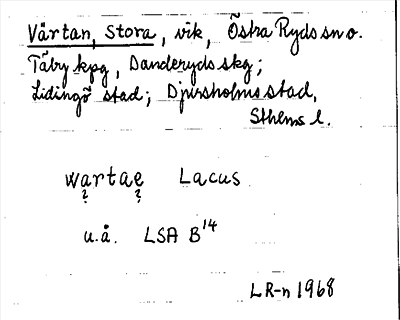 Värtan, Stora, vik, Östra Ryds sn o.
Täby kpg, Danderyds skg;
Lidingö stad; Djursholms stad,
Sthlms l.
wartae Lacus
? ?
u.å. LSA B¹⁴
LR-n 1968